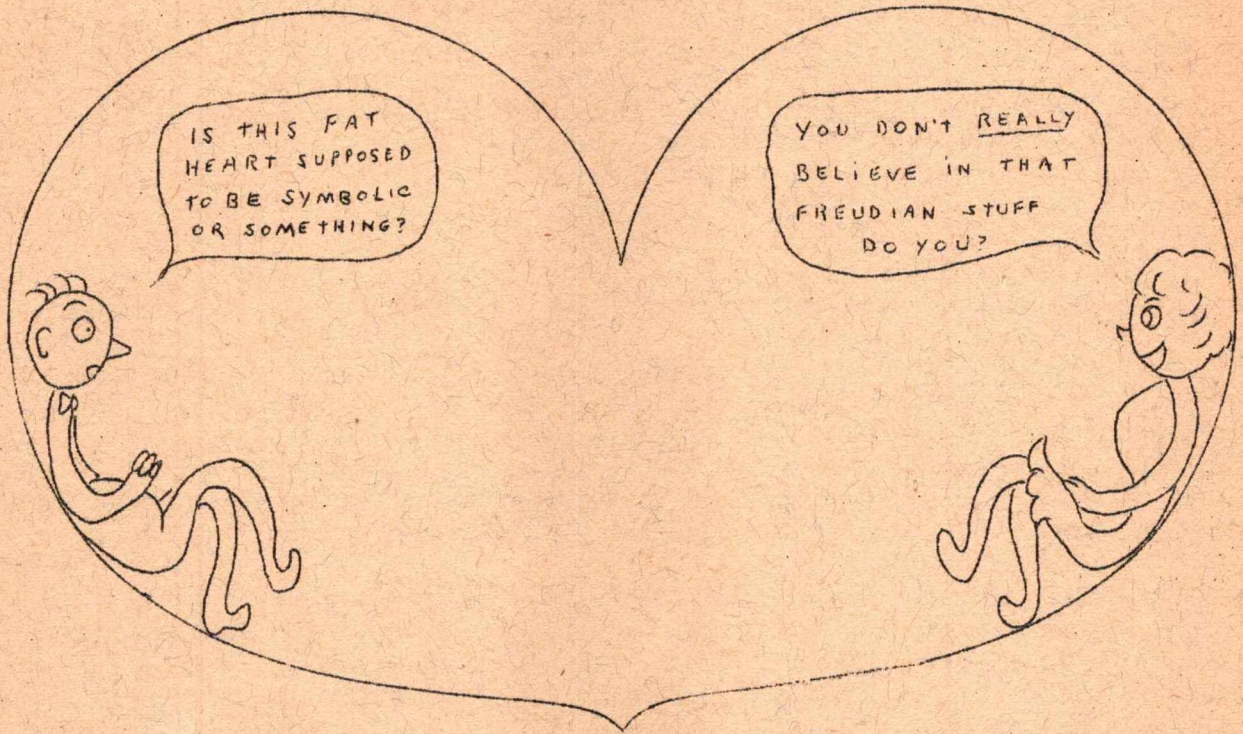 IS THIS FAT
HEART SUPPOSED
TO BE SYMBOLIC
OR SOMETHING?
YOU DON'T REALLY
BELIEVE IN THAT
FREUDIAN STUFF
DO YOU?